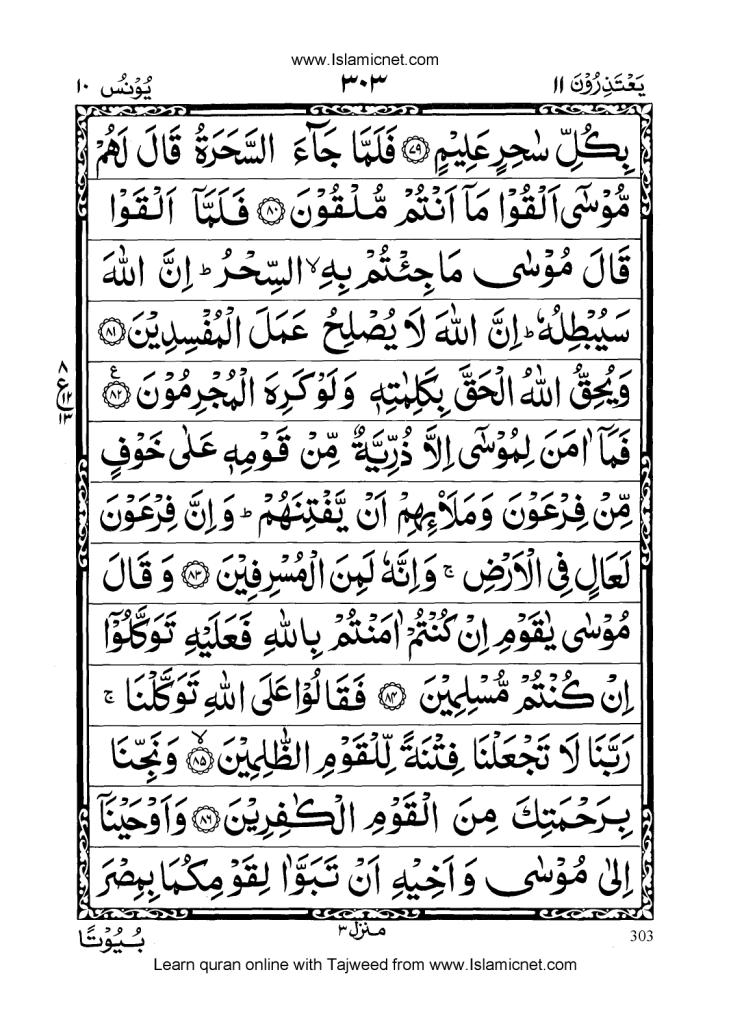 www.Islamicnet.com
يَعْتَذِرُوْنَ ١١ ٣٠٣ يُوْنُس ١٠
بِكُلِّ سٰحِرٍ عَلِيْمٍ ﴿٧٩﴾ فَلَمَّا جَآءَ السَّحَرَةُ قَالَ لَهُمْ
مُّوْسٰٓى اَلْقُوْا مَآ اَنْتُمْ مُّلْقُوْنَ ﴿٨٠﴾ فَلَمَّآ اَلْقَوْا
قَالَ مُوْسٰى مَا جِئْتُمْ بِهِ ۙ السِّحْرُ ؕ اِنَّ اللّٰهَ
سَيُبْطِلُهٗ ؕ اِنَّ اللّٰهَ لَا يُصْلِحُ عَمَلَ الْمُفْسِدِيْنَ ﴿٨١﴾
وَيُحِقُّ اللّٰهُ الْحَقَّ بِكَلِمٰتِهٖ وَلَوْ كَرِهَ الْمُجْرِمُوْنَ ﴿٨٢﴾ ع
٨ ع ١٢ ١٣
فَمَآ اٰمَنَ لِمُوْسٰٓى اِلَّا ذُرِّيَّةٌ مِّنْ قَوْمِهٖ عَلٰى خَوْفٍ
مِّنْ فِرْعَوْنَ وَمَلَا۟ئِهِمْ اَنْ يَّفْتِنَهُمْ ؕ وَاِنَّ فِرْعَوْنَ
لَعَالٍ فِى الْاَرْضِ ۚ وَاِنَّهٗ لَمِنَ الْمُسْرِفِيْنَ ﴿٨٣﴾ وَقَالَ
مُوْسٰى يٰقَوْمِ اِنْ كُنْتُمْ اٰمَنْتُمْ بِاللّٰهِ فَعَلَيْهِ تَوَكَّلُوْٓا
اِنْ كُنْتُمْ مُّسْلِمِيْنَ ﴿٨٤﴾ فَقَالُوْا عَلَى اللّٰهِ تَوَكَّلْنَا ۚ
رَبَّنَا لَا تَجْعَلْنَا فِتْنَةً لِّلْقَوْمِ الظّٰلِمِيْنَ ۙ ﴿٨٥﴾ وَنَجِّنَا
بِرَحْمَتِكَ مِنَ الْقَوْمِ الْكٰفِرِيْنَ ﴿٨٦﴾ وَاَوْحَيْنَآ
اِلٰى مُوْسٰى وَاَخِيْهِ اَنْ تَبَوَّاٰ لِقَوْمِكُمَا بِمِصْرَ
303 منزل ٣ بُيُوْتًا
Learn quran online with Tajweed from www.Islamicnet.com